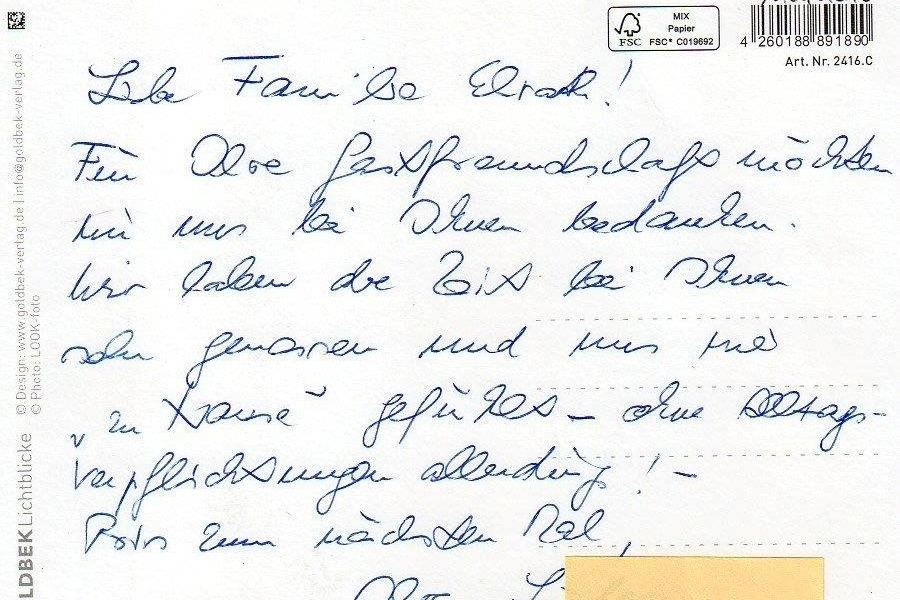 MIX
Papier
FSC
FSC® C019692
4 260188 891890
Art. Nr. 2416.C
Liebe Familie
Für Ihre Gastfreundschaft möchten
wir uns bei Ihnen bedanken.
Wir haben die Zeit bei Ihnen
sehr genossen und uns wie
„zu Hause" gefühlt – ohne Alltags-
verpflichtungen allerdings! –
Bis zum nächsten Mal,
© Design: www.goldbek-verlag.de | info@goldbek-verlag.de
© Photo: LOOK-foto
LDBEK Lichtblicke